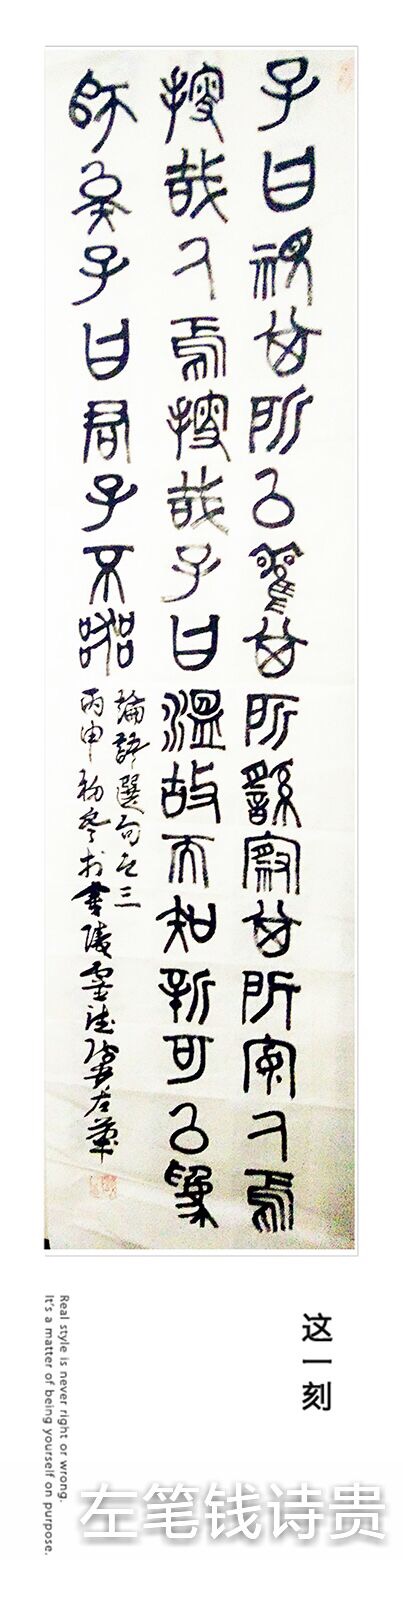 子曰視其所以觀其所繇察其所安人焉
搜哉人焉搜哉子曰溫故而知新可以為
師矣子曰君子不器
論語選句之三
丙申初冬於書左筆
这一刻
Real style is never right or wrong.
It's a matter of being yourself on purpose.
左笔钱诗贵